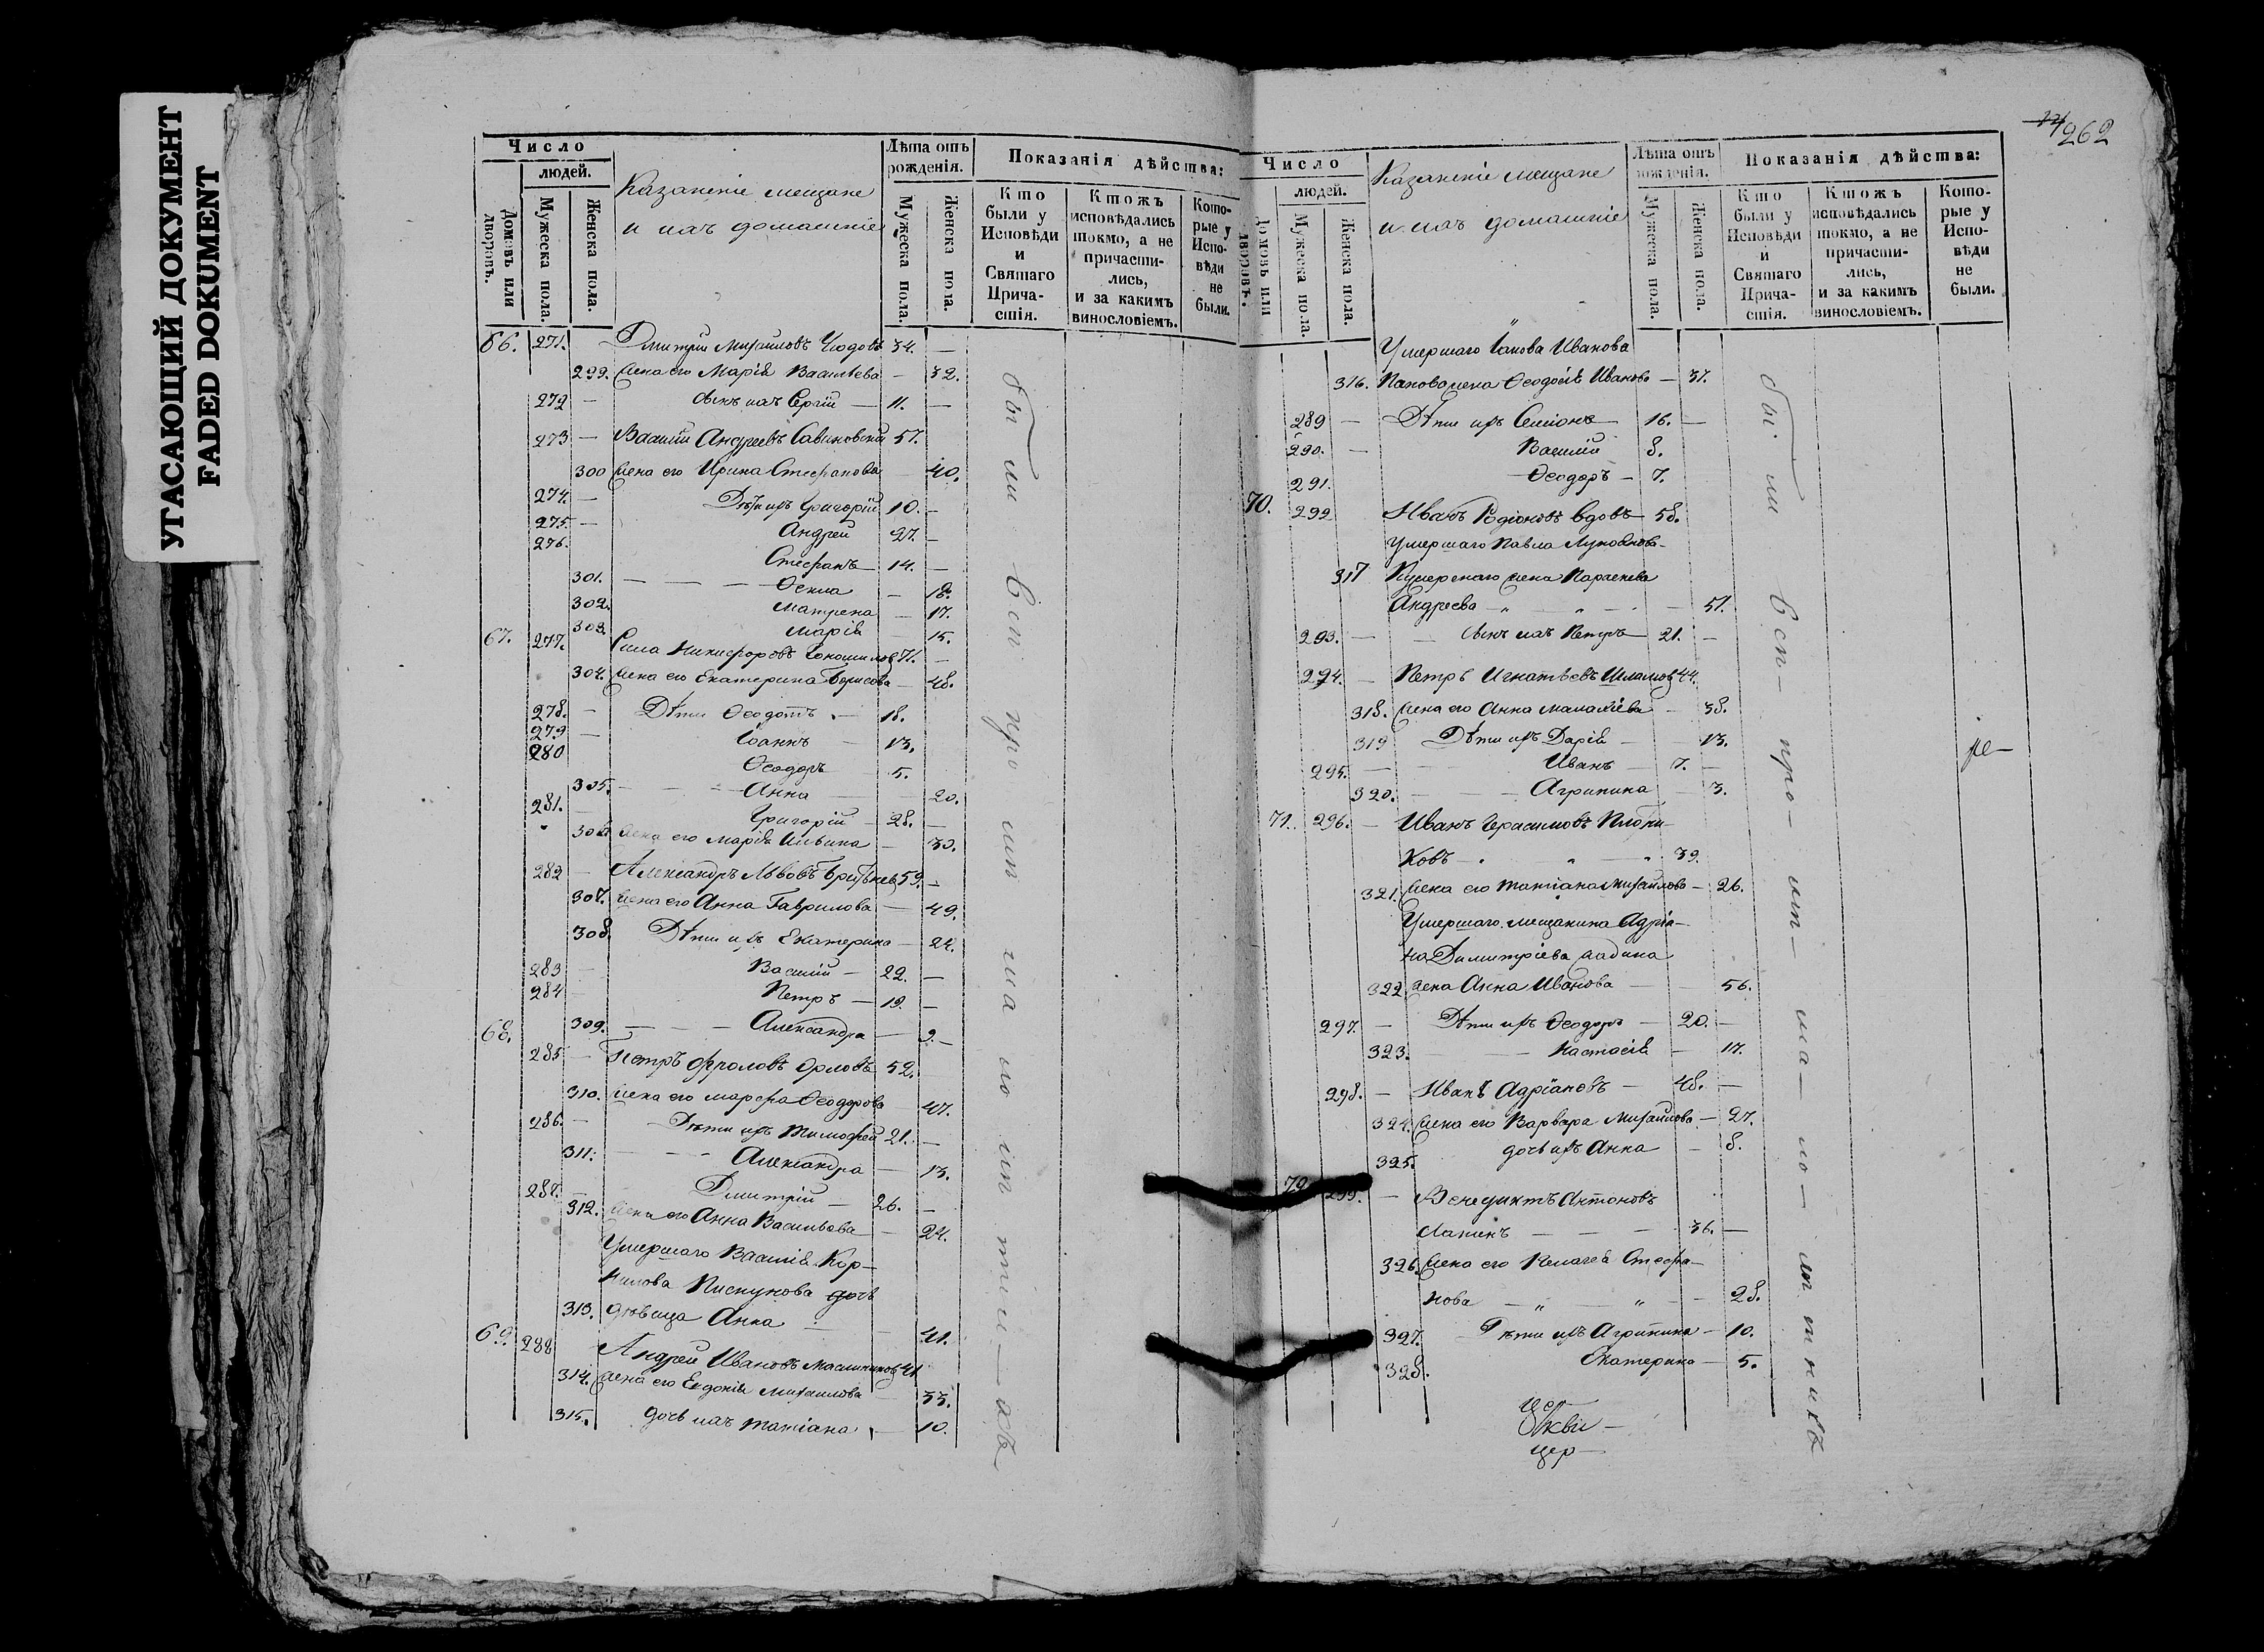 УТАСАЮЩИЙ ДОКУМЕНТ
FADED DOKUMENT
Число
людей.
Домовъ или дворовъ.
Мужеска пола.
Женска пола.
Казанскіе мещане
и ихъ домашніе
Лѣта отъ рожденія.
Мужеска пола.
Женска пола.
Показанія дѣйства:
Кто были у Исповѣди и Святаго Причастія.
Ктожъ исповѣдались токмо, а не причастились, и за какимъ винословіемъ.
Которые у Исповѣди не были.
66. 271. Дмитрій Михаиловъ Чюдовъ 34. —
299. Жена его Марія Васильева — 32.
272 — Сынъ ихъ Сергій — 11. —
273 — Василій Андреевъ 57.
300 Жена его Ирина Стефанова 40.
274. — Дѣти ихъ Григорій 10. —
275. — Андрей 27. —
276. Стефанъ — 14. —
301. — — — Ѳекла — 18.
302. Матрена — 17.
303. Марія 15.
67. 277. Сила Никифоровъ 71. —
304. Жена его Екатерина Борисова — 48.
278. — Дѣти Ѳеодотъ — 18.
279 — Іоаннъ — 13.
280 Ѳеодоръ 5.
305. — — Анна — 20.
281. — Григорій — 28. —
306. Жена его Марія Ильина — 30.
282 — Александръ Львовъ 59. —
307. Жена его Анна Гаврилова — 49.
308. Дѣти ихъ Екатерина — 24.
283 — Василій — 22. —
284 — Петръ — 19. —
309. — — — Александра — 9. —
68.
285 — Петръ Фроловъ Орловъ 52.
310. Жена его Марфа Ѳеодорова 47.
286. — Дѣти ихъ Тимофей 21. —
311. — — — Александра — 13.
287. Дмитрій — 26. —
312. Жена его Анна Васильева — 24.
Умершаго Василія Кор-
нилова Пискунова дочь
313. дѣвица Анна — — 41.
69. 288 Андрей Ивановъ Масленниковъ 41
314. Жена его Евдокія Михаилова — 33.
315. дочь ихъ Татіана — 10.
были у исп
262
Число
людей.
Домовъ или дворовъ.
Мужеска пола.
Женска пола.
Казанскіе мещане
и ихъ домашніе
Лѣта отъ рожденія.
Мужеска пола.
Женска пола.
Показанія дѣйства:
Кто были у Исповѣди и Святаго Причастія.
Ктожъ исповѣдались токмо, а не причастились, и за какимъ винословіемъ.
Которые у Исповѣди не были.
Умершаго Іакова Иванова
316. Панова жена Ѳеодосія Иванова — 37.
289 — Дѣти ихъ Семіонъ — 16. —
290. — Василій 8.
291. Ѳеодоръ — 7.
70. 292 Иванъ Родіоновъ вдовъ 58.
Умершаго Павла
317 жена
Андреева — — 51.
293. — Сынъ ихъ Петръ — 21. —
294. — Петръ Игнатьевъ Шламовъ 44.
318. Жена его Анна Малахіева — 38.
319 Дѣти ихъ Дарія — 13.
295. — Иванъ — 7. —
320. — — Агрипина — 3.
71. 296. — Иванъ Герасимовъ Плотни-
ковъ — 39.
321. Жена его Татіана Михайлова — 26.
Умершаго мещанина Адріа-
на Димитріева
322. жена Анна Иванова — 56.
297. — Дѣти ихъ Ѳеодоръ — 20. —
323. — — Настасія — 17.
298. — Иванъ Адріановъ — 48. —
324. Жена его Варвара Михайлова — 27.
325. дочь ихъ Анна — 8.
72. 299. — Венедиктъ Антоновъ
Лапинъ — — — 36. —
326. Жена его Пелагея Стефа-
нова — — 28.
327. Дѣти ихъ Агрипина — 10.
328. Екатерина — 5.